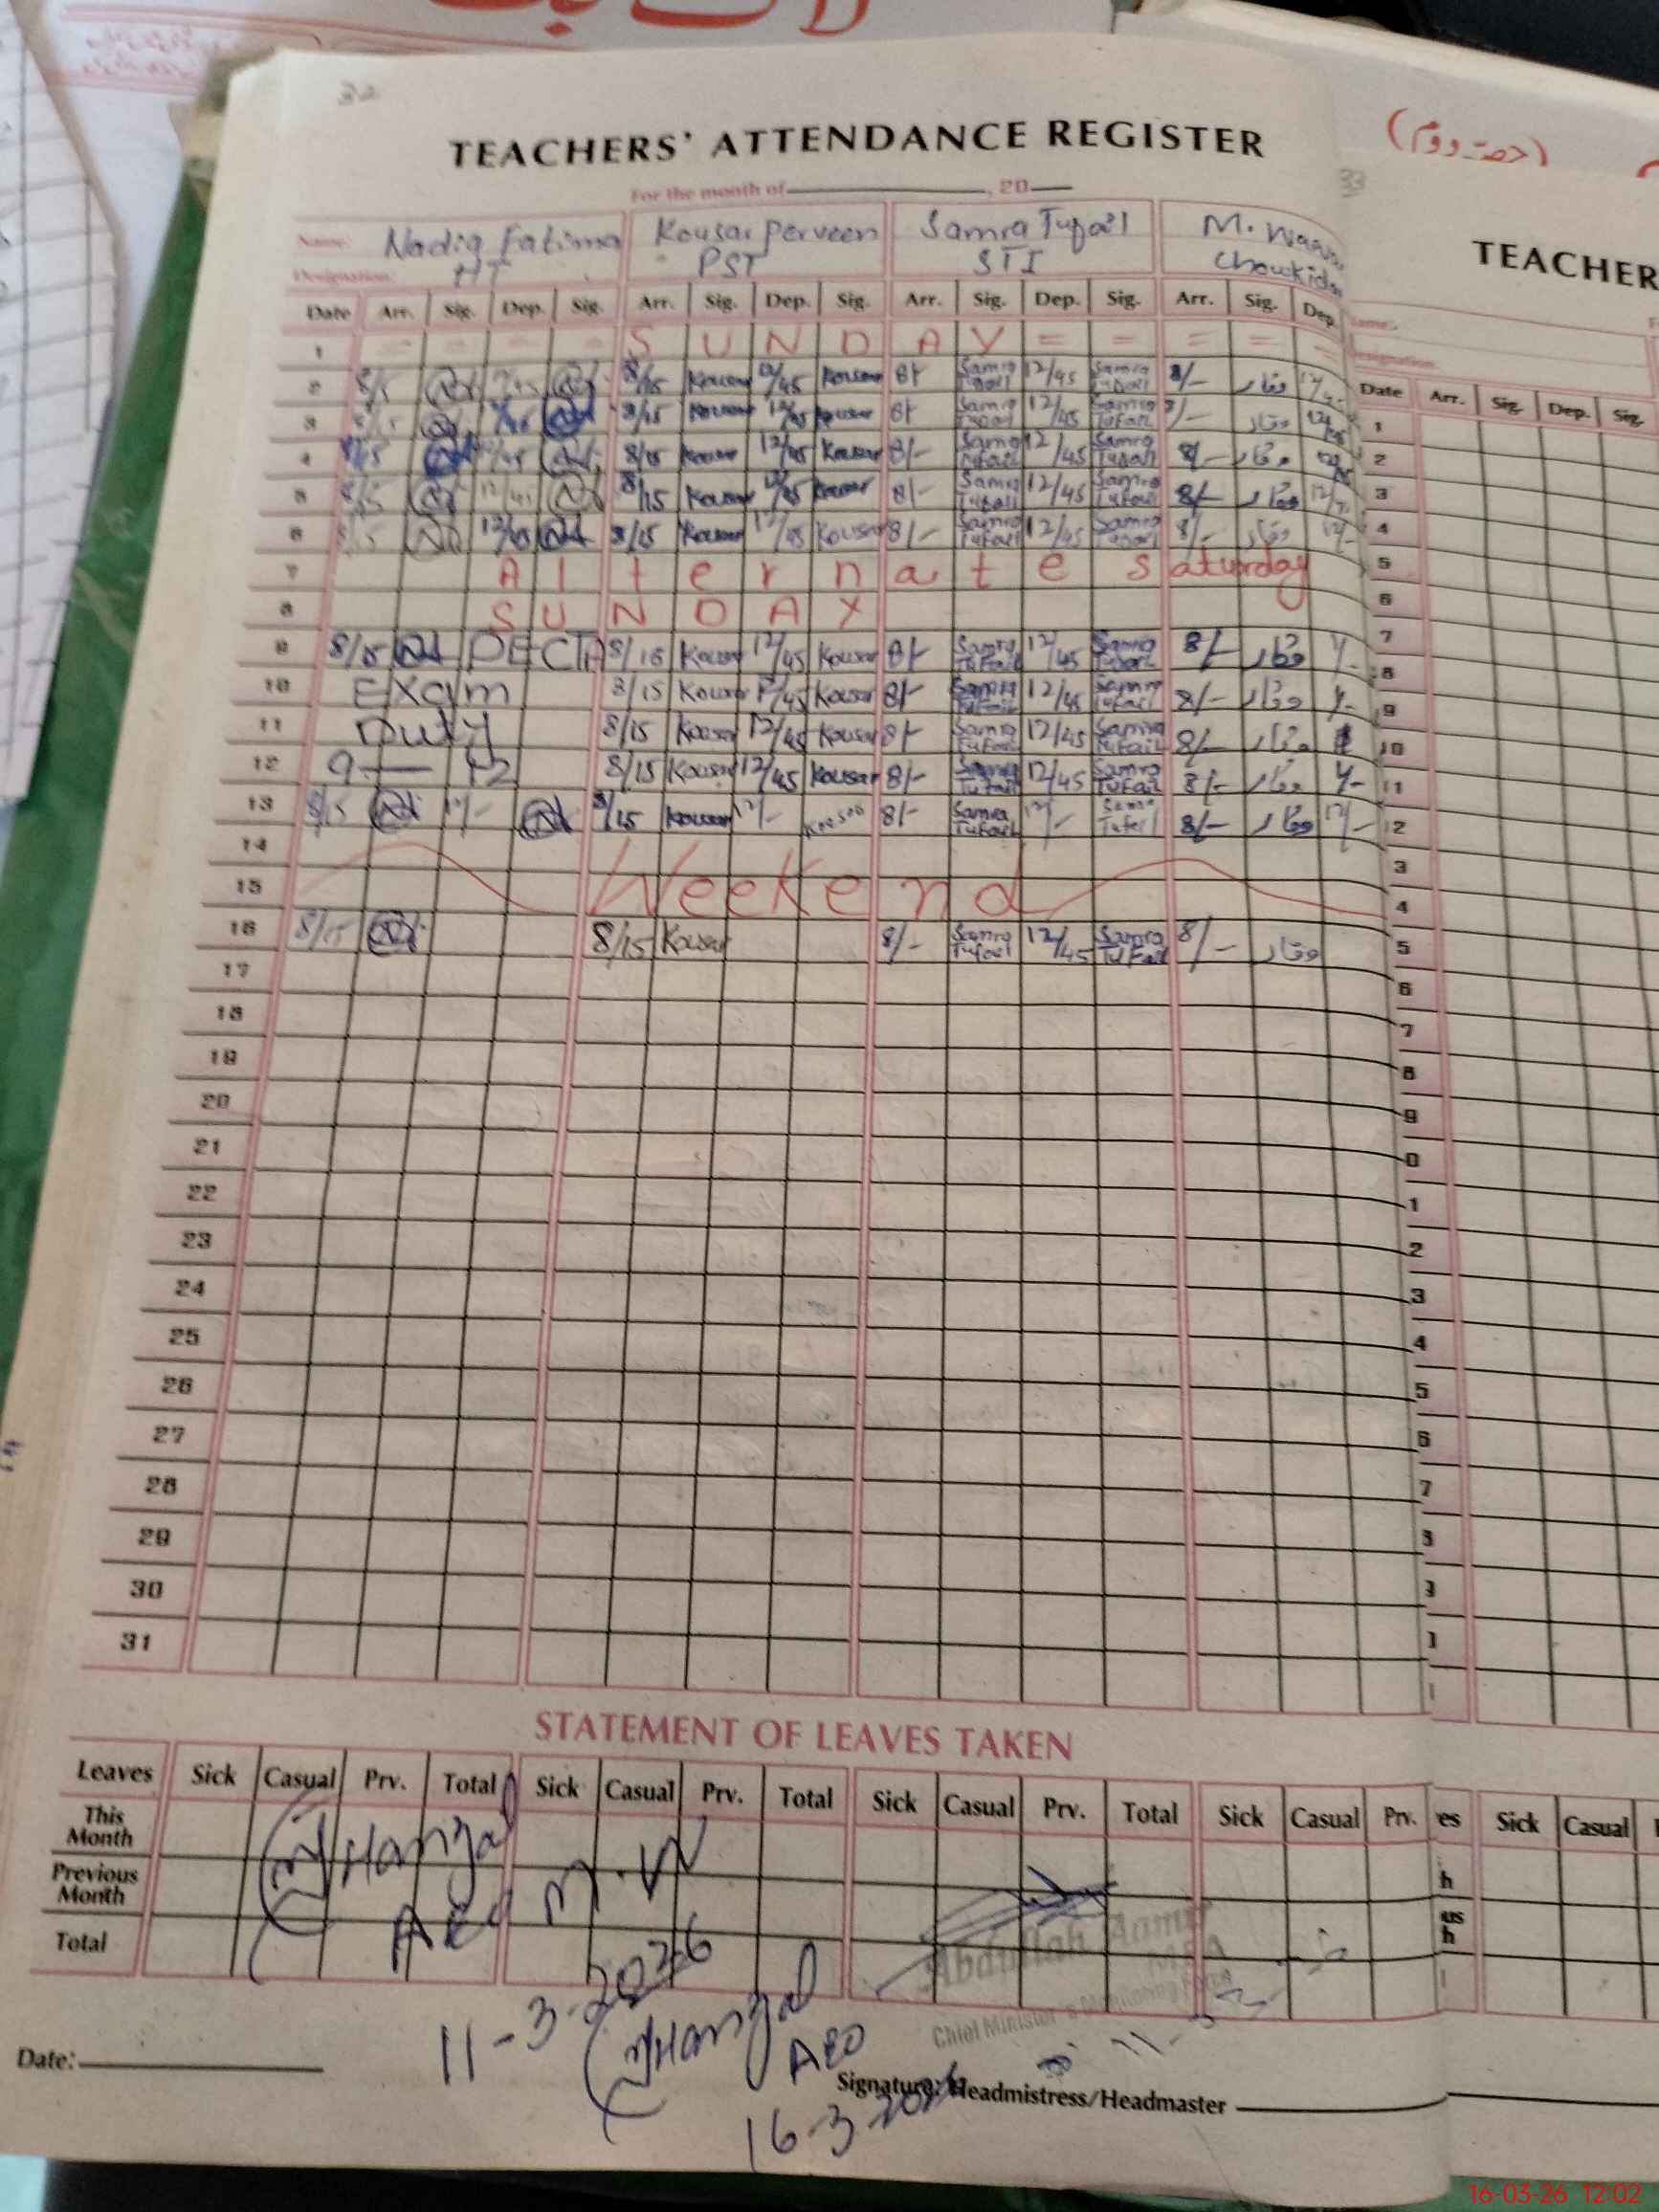 32
TEACHERS' ATTENDANCE REGISTER
For the month of ________, 20__
Name: Nadia Fatima Kousar Perveen Samra Tufail M.
Designation: HT PST STI Chowkid
Date Arr. Sig. Dep. Sig. Arr. Sig. Dep. Sig. Arr. Sig. Dep. Sig. Arr. Sig. Dep.
1 = = = = S U N D A Y = = = = =
2 8/15 8/15 Kousar 12/45 Kousar 8/- Samra Tufail 12/45 Samra Tufail 8/- وقار
3 8/15 8/15 Kousar 12/45 Kousar 8/- Samra Tufail 12/45 Samra Tufail 8/- وقار 12/45
4 8/15 12/45 8/15 Kousar 12/45 Kousar 8/- Samra Tufail 12/45 Samra Tufail 8/- وقار 12/45
5 8/15 12/45 8/15 Kousar 12/45 Kousar 8/- Samra Tufail 12/45 Samra Tufail 8/- وقار
6 8/15 12/45 8/15 Kousar 12/45 Kousar 8/- Samra Tufail 12/45 Samra Tufail 8/- وقار 12/-
7 A l t e r n a t e saturday
8 S U N D A Y
9 8/15 PECTA 8/15 Kousar 12/45 Kousar 8/- Samra Tufail 12/45 Samra Tufail 8/- وقار
10 Exam 8/15 Kousar 12/45 Kousar 8/- Samra Tufail 12/45 Samra Tufail 8/- وقار
11 Duty 8/15 Kousar 12/45 Kousar 8/- Samra Tufail 12/45 Samra Tufail 8/- وقار
12 9 — 12 8/15 Kousar 12/45 Kousar 8/- Samra Tufail 12/45 Samra Tufail 8/- وقار
13 8/15 12/- 8/15 Kousar 12/- Kousar 8/- Samra Tufail 12/- Samra Tufail 8/- وقار 12/-
14
15 Weekend
16 8/15 8/15 Kousar 8/- Samra Tufail 12/45 Samra Tufail 8/- وقار
17
18
19
20
21
22
23
24
25
26
27
28
29
30
31
STATEMENT OF LEAVES TAKEN
Leaves Sick Casual Prv. Total Sick Casual Prv. Total Sick Casual Prv. Total Sick Casual Prv.
This Month
Previous Month
Total
AEO M.W
11-3-2026
Abdullah Aamir
MEA
Chief Minister's Monitoring Force
AEO
16-3-2026
Date: ________
Signature: Headmistress/Headmaster ________
(حصہ دوم)
33
TEACHER
Name:
Designation:
Date Arr. Sig. Dep. Sig.
1
2
3
4
5
6
7
8
9
10
11
12
3
4
5
6
7
8
9
0
1
2
3
4
5
6
7
es Sick Casual
h
us
h
16-03-26 12:02